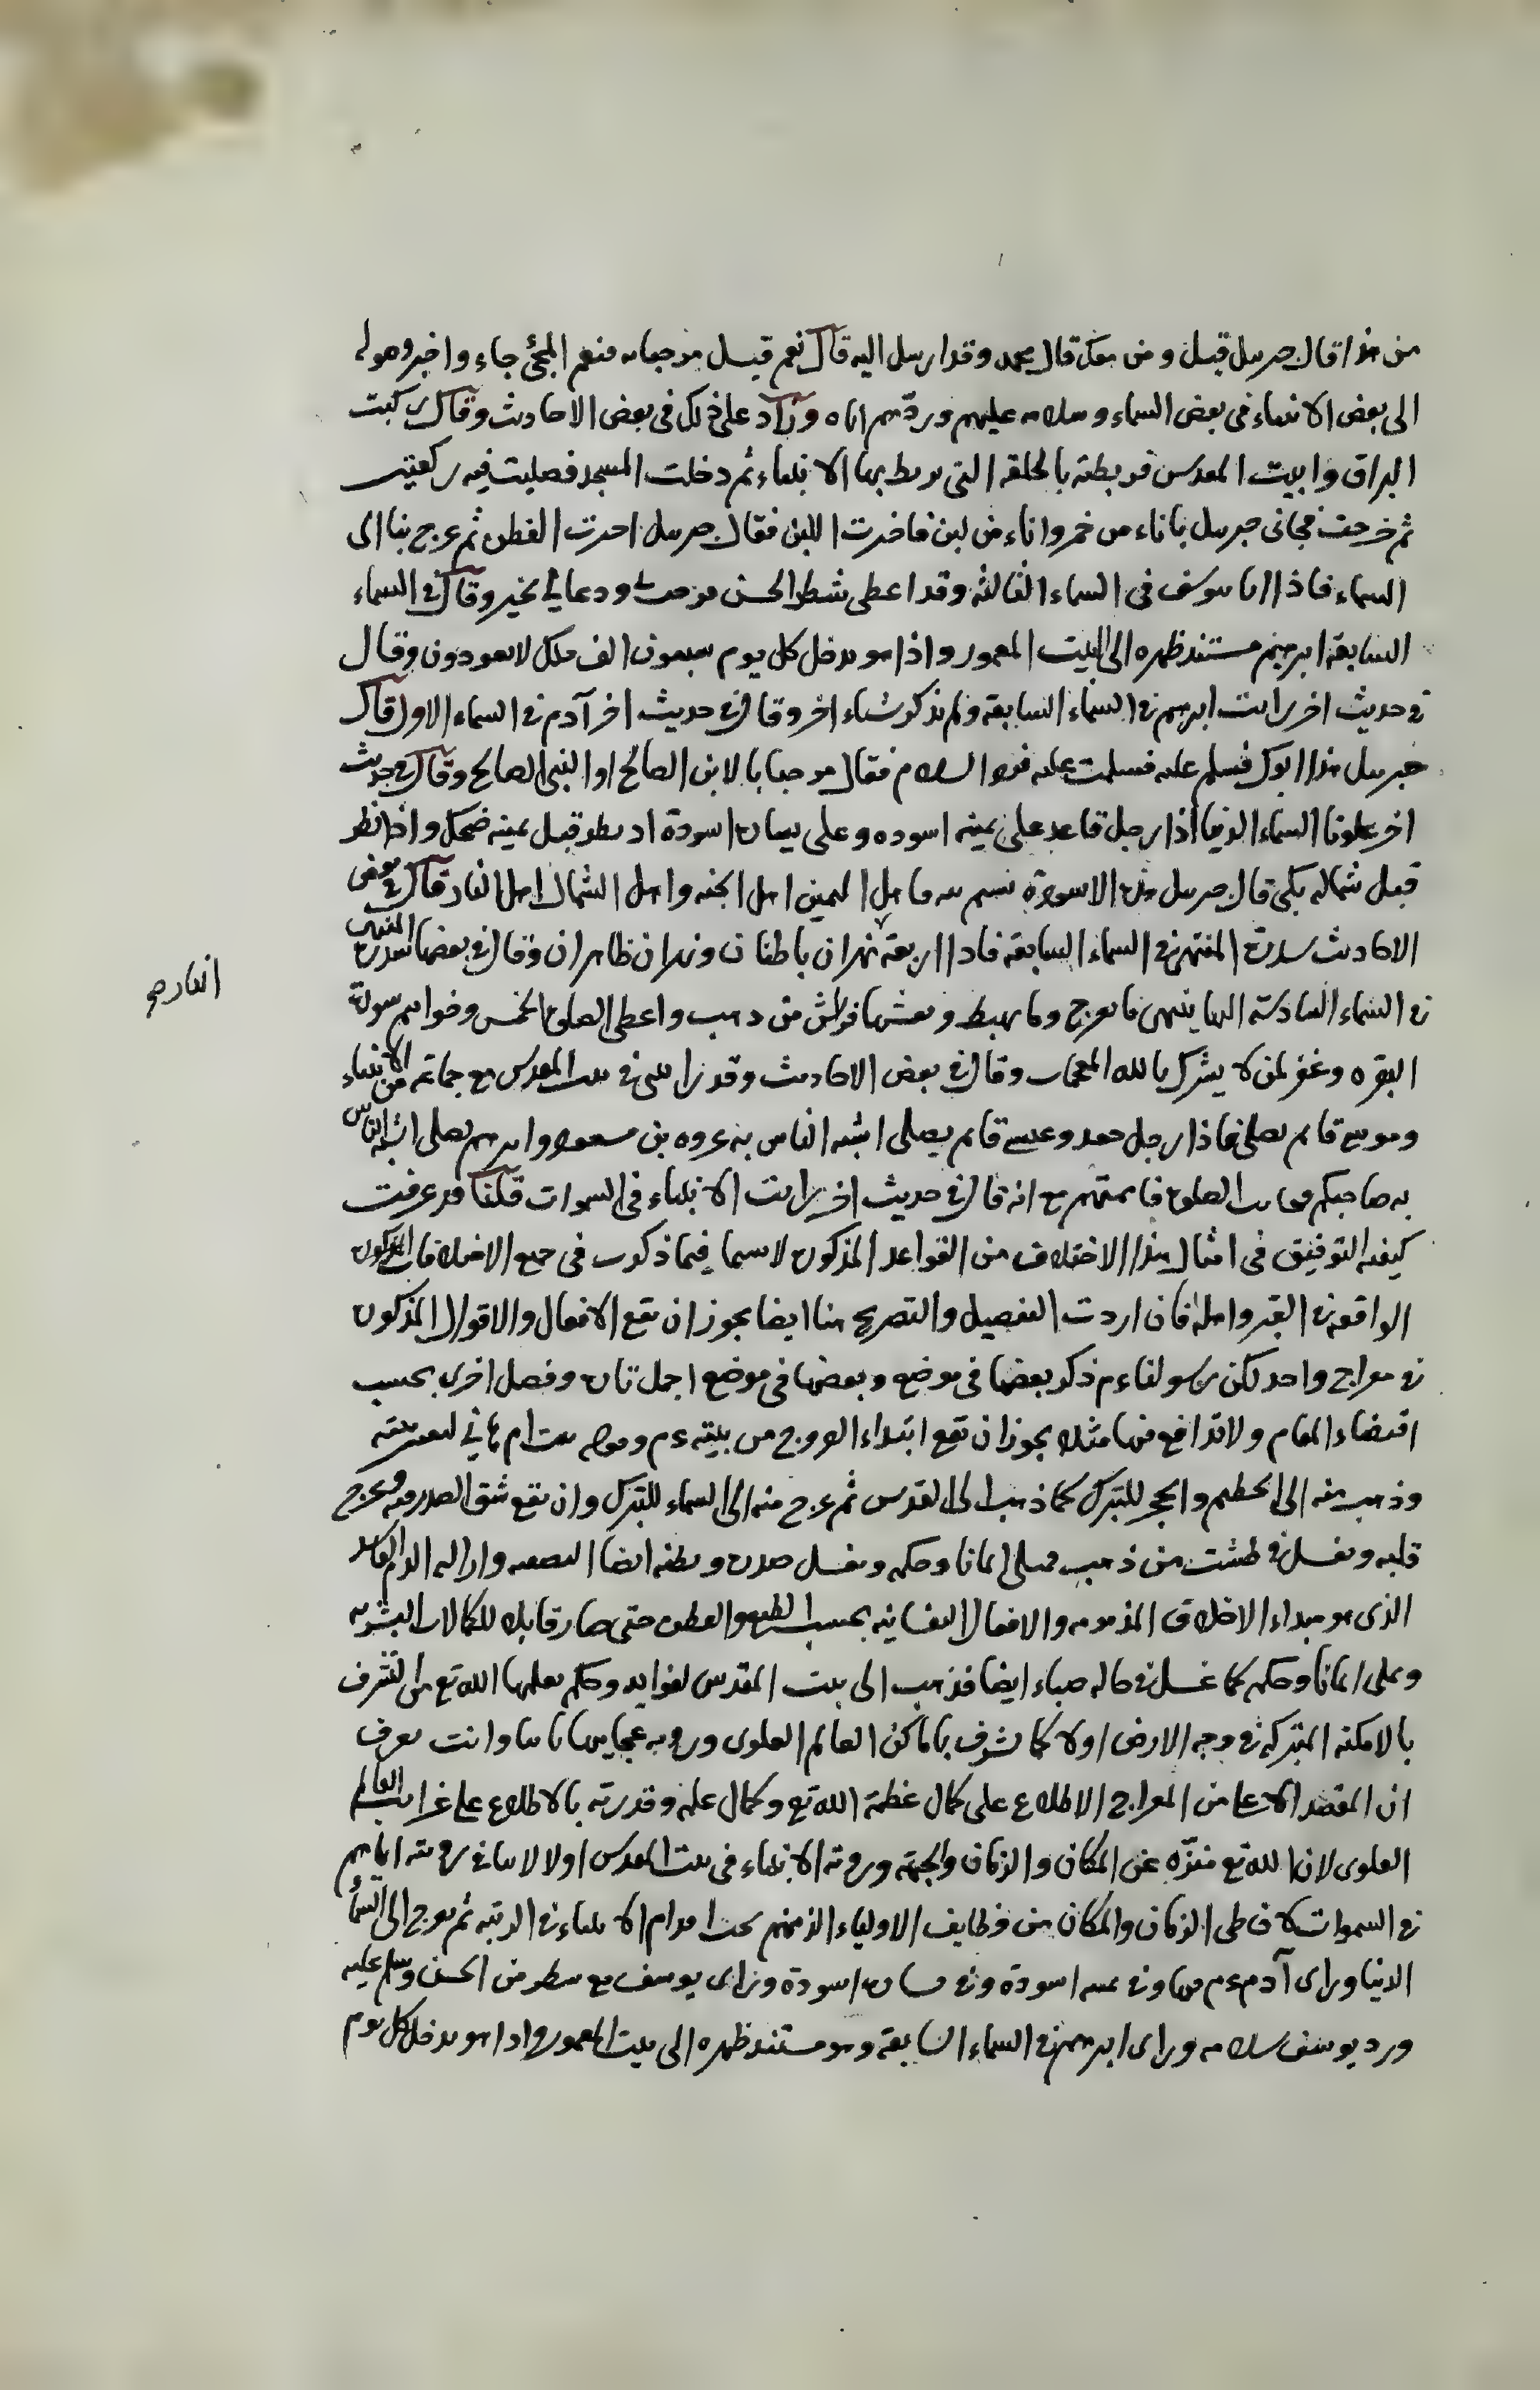 من هذا قال جبريل قيل ومن معك قال محمد وقد ارسل اليه قال نعم قيل مرحبا به فنعم المجئ جاء واخبر وصوله
الى بعض الانبياء في بعض السماء وسلامه عليهم وردهم اياه وزاد على ذلك في بعض الاحاديث وقال ركبت
البراق واتيت بيت المقدس فربطته بالحلقة التي يربط بها الانبياء ثم دخلت المسجد فصليت فيه ركعتين
ثم خرجت فجاني جبريل باناء من خمر واناء من لبن فاخترت اللبن فقال جبريل اخترت الفطرة ثم عرج بنا الى
السماء فاذا انا بيوسف في السماء الثالثة وقد اعطى شطر الحسن فرحب ودعا لي بخير وقال في السماء
السابعة ابرهيم مستند ظهره الى البيت المعمور واذا هو يدخل كل يوم سبعون الف ملك لا يعودون وقال
في حديث اخر رايت ابرهيم في السماء السابعة ولم يذكر شيئا اخر وقال في حديث اخر آدم في السماء الاول قال
جبريل هذا ابوك فسلم عليه فسلمت عليه فرد السلام فقال مرحبا بالابن الصالح والنبي الصالح وقال في حديث
اخر علونا السماء الدنيا اذا رجل قاعد على يمينه اسوده وعلى يساره اسودة اذ نظر قبل يمينه ضحك واذا نظر
قبل شماله بكى قال جبريل هذه الاسودة نسم بنيه فاهل اليمين اهل الجنة واهل الشمال اهل النار وقال في بعض
الاحاديث سدرة المنتهى في السماء السابعة فاذا اربعة نهران باطنان ونهران ظاهران وقال في بعضها سدرة المنتهى
انهار صح
في السماء السادسة اليها ينتهى ما يعرج وما يهبط ويغشيها فراش من ذهب واعطى الصلوة الخمس وخواتيم سورة
البقره وغفر لمن لا يشرك بالله المقحمات وقال في بعض الاحاديث وقد رايتني في بيت المقدس مع جماعة من الانبياء
وموسى قائم يصلي فاذا رجل جعد وعيسى قائم يصلي اشبه الناس به عروه بن مسعود وابرهيم يصلي اشبه الناس
به صاحبكم فحانت الصلوة فاممتهم مع انه قال في حديث اخر رايت الانبياء في السموات قلنا قد عرفت
كيفية التوفيق في امثال هذا الاختلاف من القواعد المذكورة لا سيما فيما ذكرت في جمع الاختلافات المذكورة
الواقعة في القبر واهله فان اردت التفصيل والتصريح هنا ايضا يجوز ان تقع الافعال والاقوال المذكورة
في معراج واحد لكن رسولنا عم ذكر بعضها في موضع وبعضها في موضع اجمل تارة وفصل اخرى بحسب
اقتضاء المقام ولا تدافع فيها مثلا يجوز ان تقع ابتداء العروج من بيته عم وموضعه بيت ام هاني
وذهب منه الى الحطيم والحجر للتبرك كما ذهب الى القدس ثم عرج منه الى السماء للتبرك وان تقع شق الصدر فيه
قلبه وتغسل في طشت من ذهب مملى ايمانا وحكمة وتغسل صدره وبطنه ايضا
الذي هو مبداء الاخلاق المذمومة والافعال النفسانية بحسب الطبع والفطرة حتى صار قابلا للكمالات البشرية
وملى ايمانا وحكمة كما غسل في حالة صباه ايضا فذهب الى بيت المقدس لفوايد وحكم يعلمها الله تع
بالامكنة المتبركة في وجه الارض اولا كما تشرف باماكن العالم العلوى ورؤية عجايبها ثانيا وانت تعرف
ان المقصد الاعلى من المعراج الاطلاع على كمال عظمة الله تع وكمال علمه وقدرته بالاطلاع على غرايب العالم
العلوى لان الله تع منزه عن المكان والزمان والجهة ورؤية الانبياء في بيت المقدس اولا لا ينافي رؤيته اياهم
في السموات لان طي الزمان والمكان من وظايف الاولياء الذينهم تحت اقدام الانبياء في الرتبة ثم يعرج الى السماء
الدنيا وراى آدم عم فيها وفي يمينه اسودة وفي يساره اسودة وراى يوسف مع شطر من الحسن وسلم عليه
ورد يوسف سلامه وراى ابرهيم في السماء السابعة وهو مستند ظهره الى بيت المعمور واذا هو يدخل كل يوم